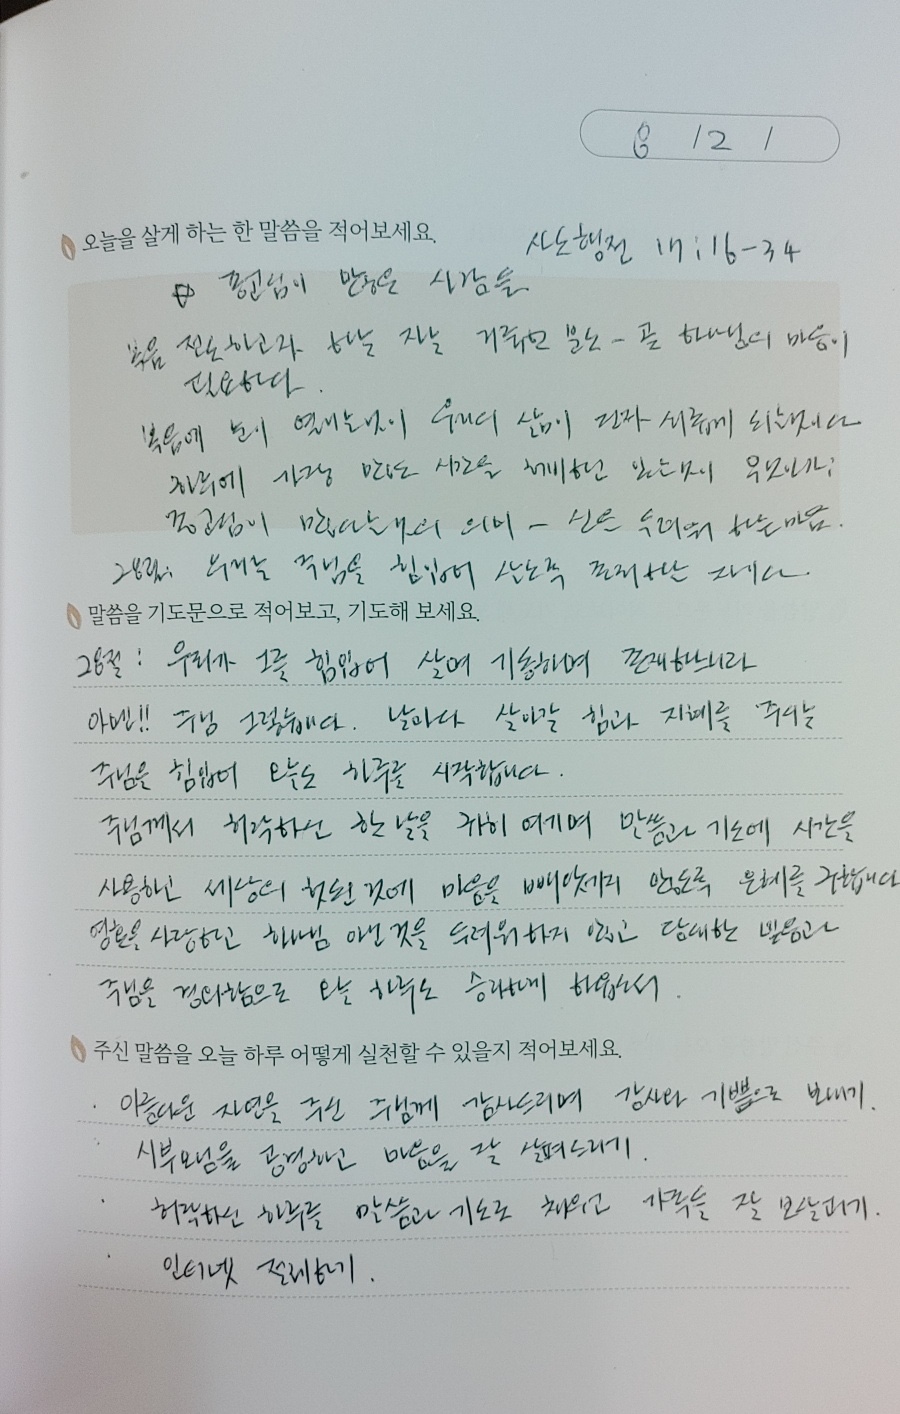 8 / 2 1
오늘을 살게 하는 한 말씀을 적어보세요.
사도행전 17:16-34
시간들
복음 전도하고자 하는 자는 거룩한 분노 - 곧 하나님의 마음이
필요하다.
복음에 눈이 열리는것이 우리의 삶이 진짜 새롭게 되는것이다
하루에 가장 많은 시간을 허비하고 있는것이 무엇인가;
종교심이 많다는 의미 - 신을 두려워 하는마음.
28절: 우리는 주님을 힘입어 존재하는
말씀을 기도문으로 적어보고, 기도해 보세요.
28절: 우리가 그를 힘입어 살며 기동하며 존재하느니라
아멘!! 주님 그렇습니다. 날마다 살아갈 힘과 지혜를 주시는
주님을 힘입어 오늘도 하루를 시작합니다.
주님께서 허락하신 한 날을 귀히 여기며 말씀과 기도에 시간을
사용하고 세상의 헛된 것에 마음을 빼앗기지 않도록 은혜를 구합니다
영혼을 사랑하고 하나님 아닌 것을 두려워하지 않고 담대한 믿음과
주님을 경외함으로 오늘 하루도 승리하게 하옵소서.
주신 말씀을 오늘 하루 어떻게 실천할 수 있을지 적어보세요.
· 아름다운 자연을 주신 주님께 감사드리며 감사와 기쁨으로 보내기.
· 시부모님을 공경하고 마음을 잘 살펴드리기.
· 허락하신 하루를 말씀과 기도로 채우고 가족들 잘 보살피기.
· 인터넷 절제하기.